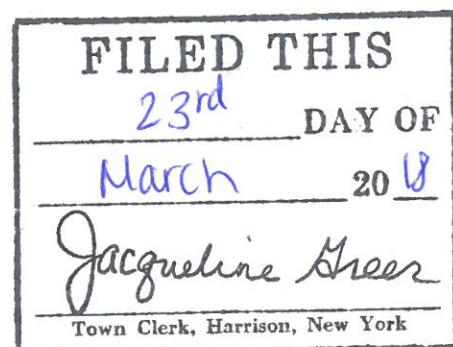 FILED THIS
23rd DAY OF
March 2018
Jacqueline Greer
Town Clerk, Harrison, New York